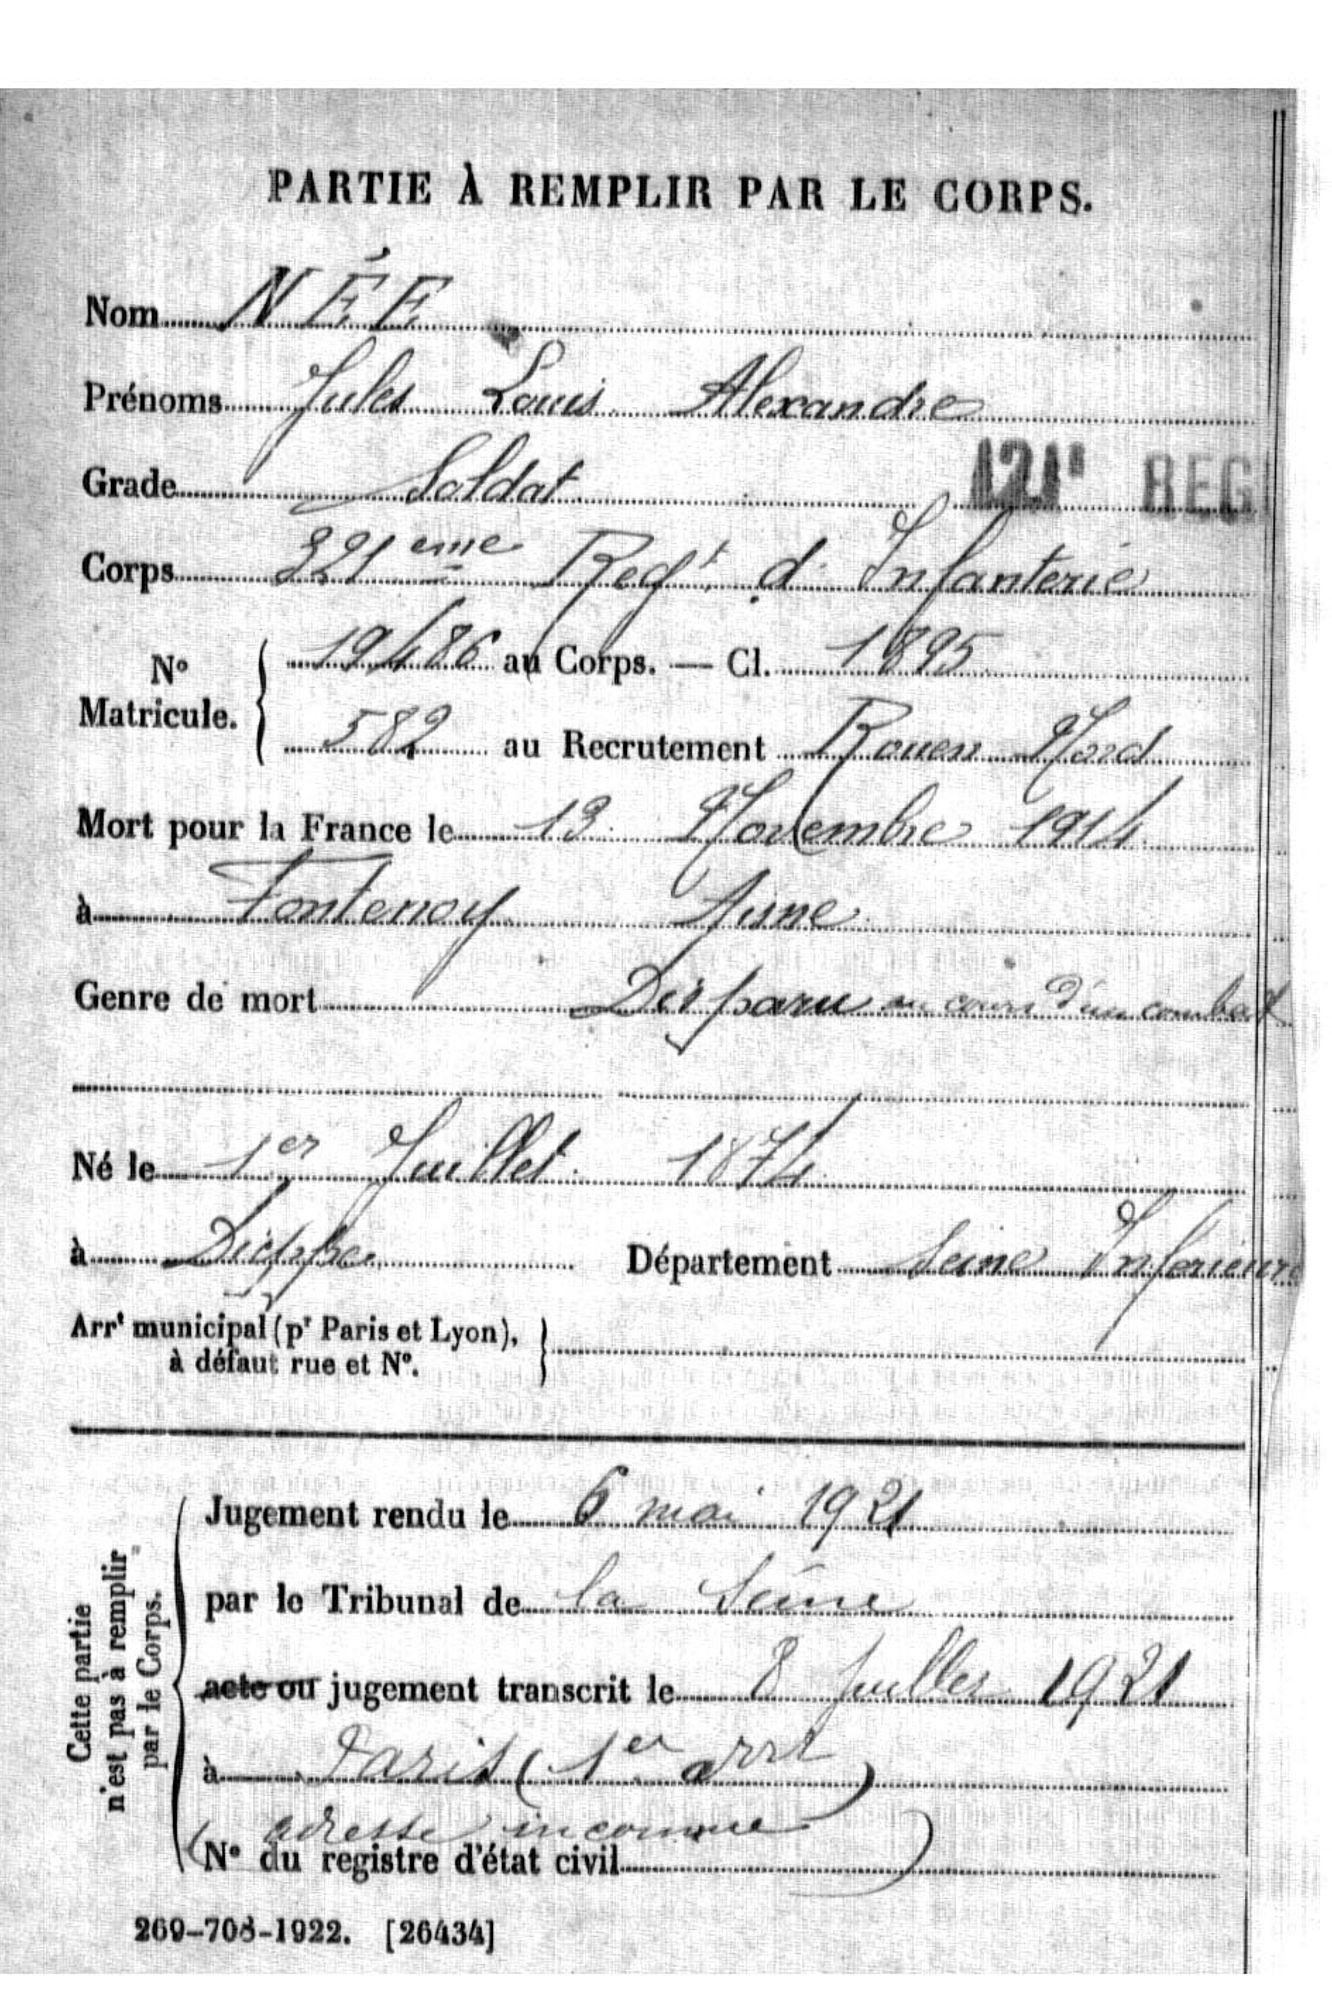 PARTIE À REMPLIR PAR LE CORPS.
Nom NÉE
Prénoms Jules Louis Alexandre
Grade Soldat 121e REG
Corps 321eme Regt d'Infanterie
No Matricule. { 19486 au Corps. — Cl. 1895
582 au Recrutement Rouen Nord
Mort pour la France le 13 Novembre 1914
à Fontenoy Aisne
Genre de mort Disparu au cours d'un combat
Né le 1er Juillet 1874
à Dieppe Département Seine Inférieure
Arrt municipal (pr Paris et Lyon), à défaut rue et No. }
Cette partie n'est pas à remplir par le Corps.
Jugement rendu le 6 mai 1921
par le Tribunal de la Seine
acte ou jugement transcrit le 8 Juillet 1921
à Paris (1er arrt)
(adresse inconnue)
No du registre d'état civil
269-708-1922. [26434]